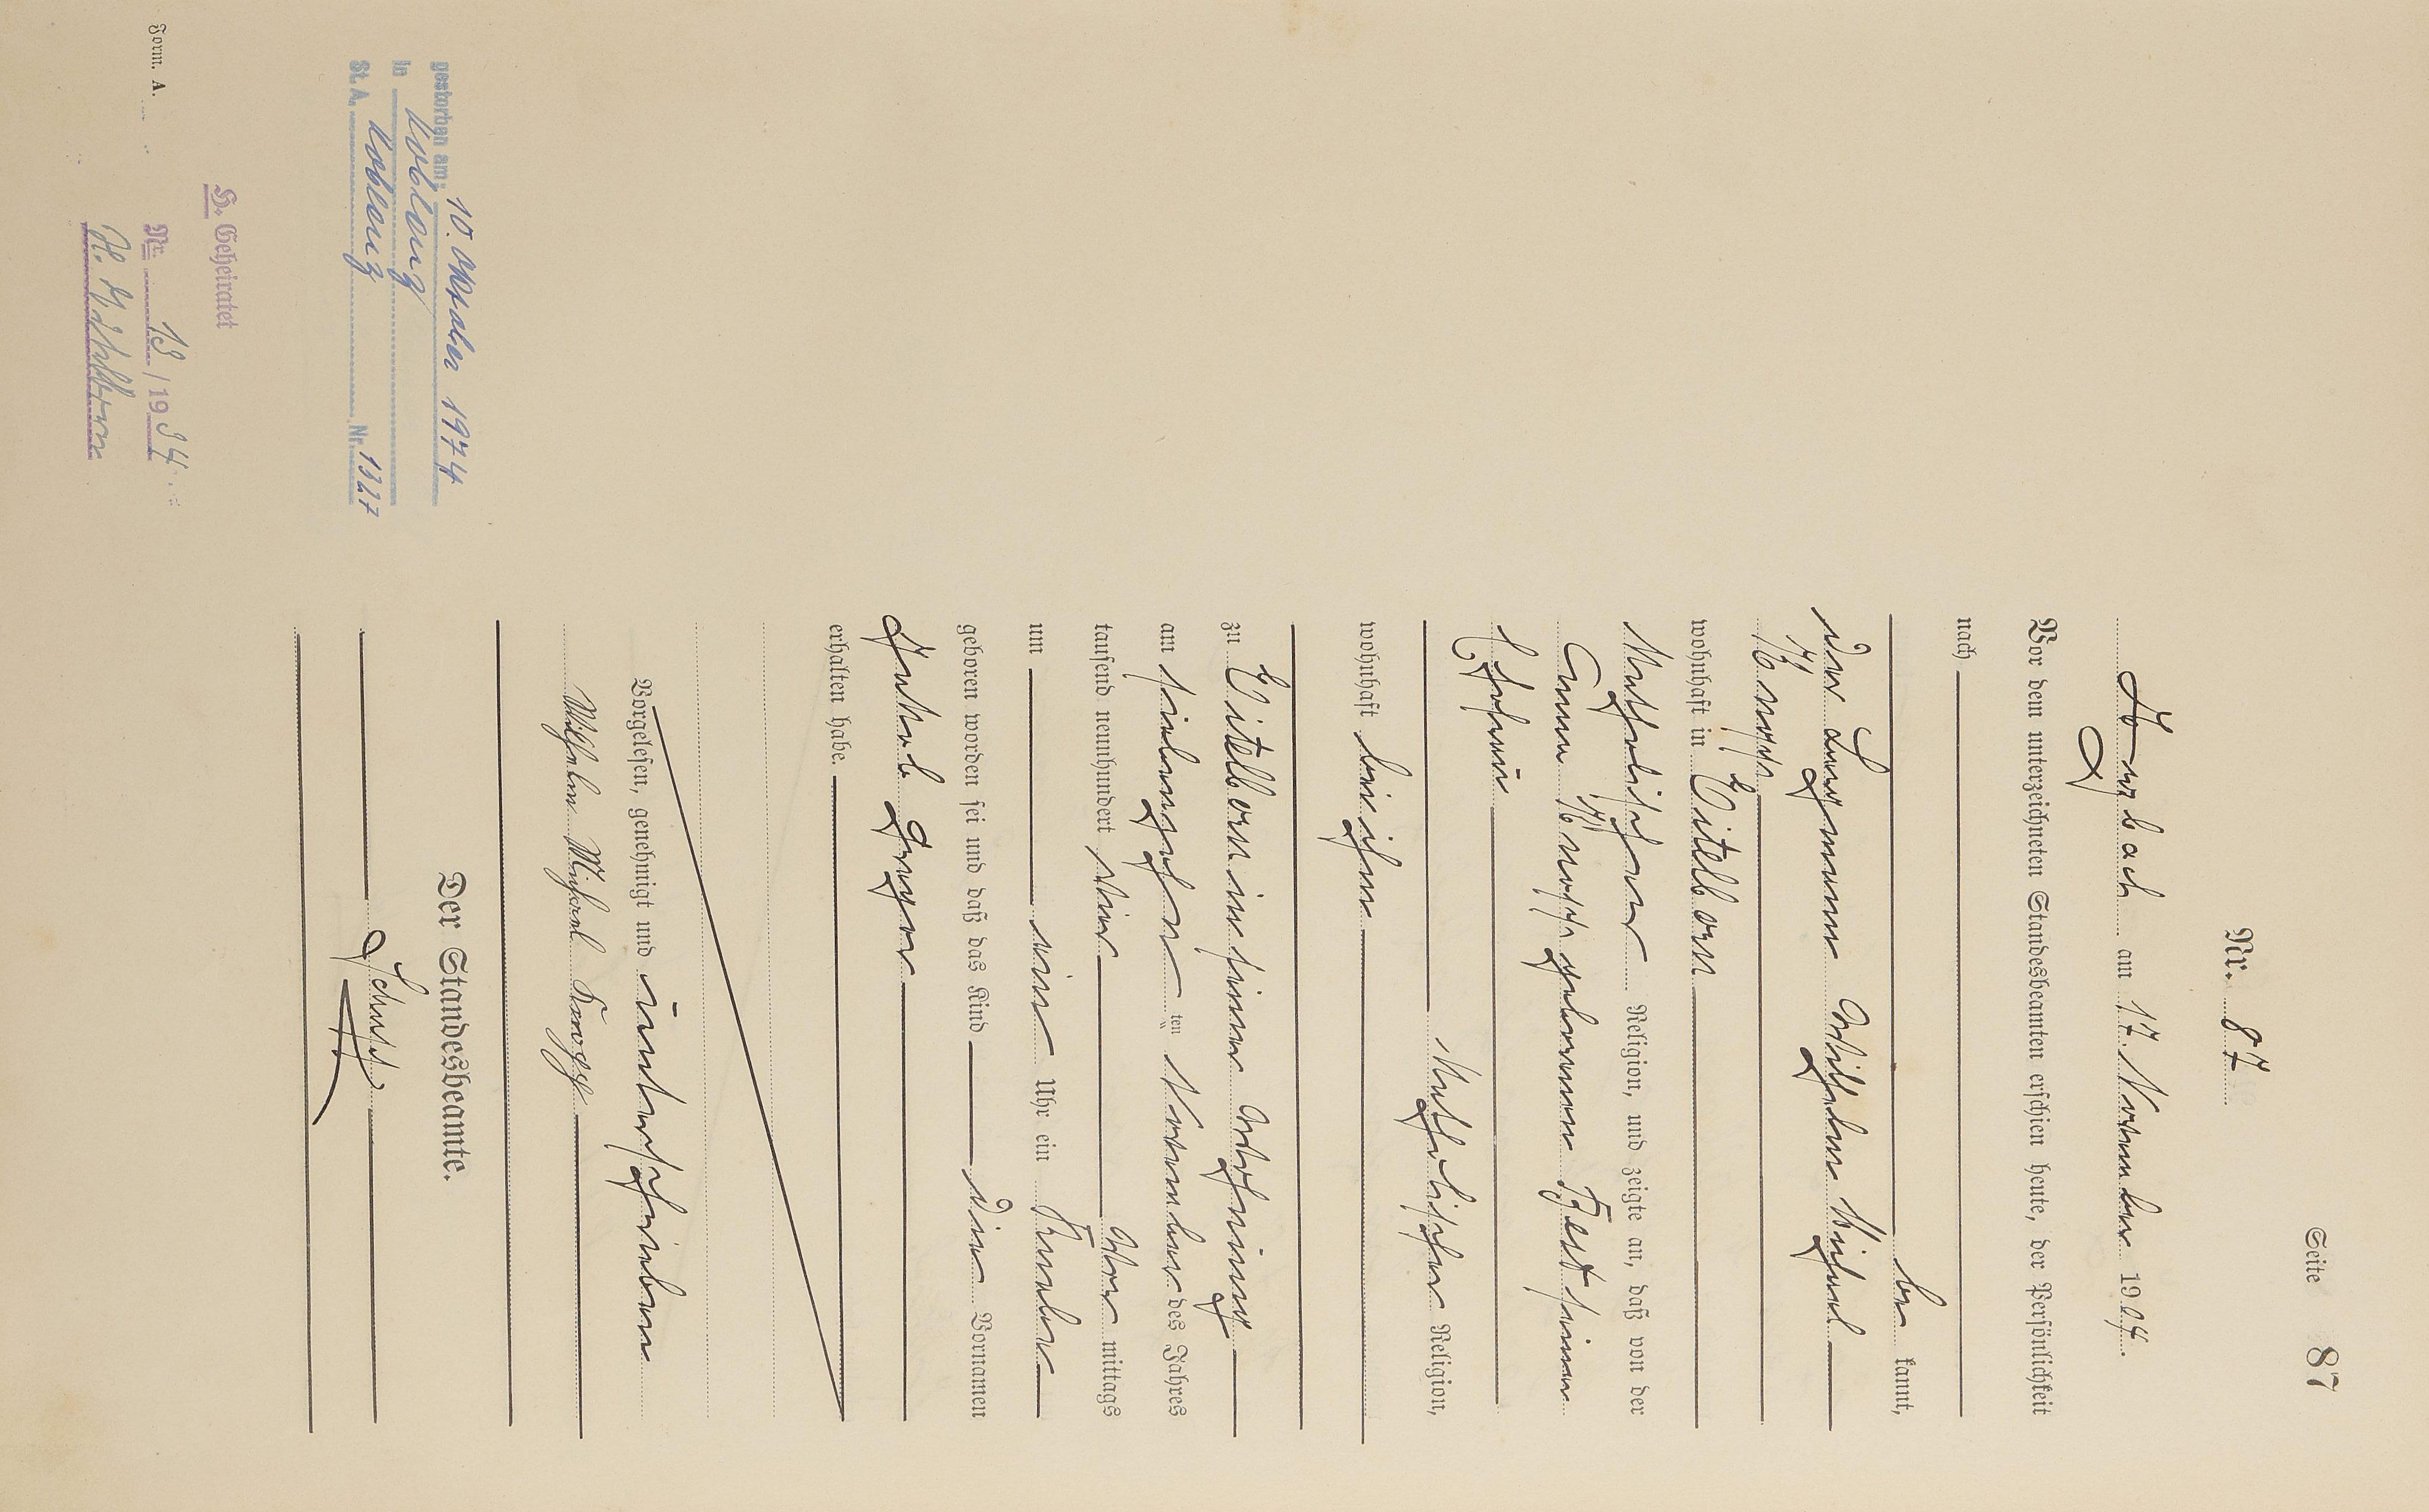 Seite 87
Nr. 87
Arzbach am 17. November 1904.
Vor dem unterzeichneten Standesbeamten erschien heute, der Persönlichkeit
nach
be kannt,
der Bergmann Wilhelm Michael
Knopp
wohnhaft in Eitelborn
katholischer Religion, und zeigte an, daß von der
Anna Knopp geborenen Best seiner
Ehefrau
katholischer Religion,
wohnhaft bei ihm
zu Eitelborn in seiner Wohnung
am siebenzehnten November des Jahres
tausend neunhundert vier Vor mittags
um ein Uhr ein Knabe
geboren worden sei und daß das Kind die Vornamen
Jakob
erhalten habe.
Vorgelesen, genehmigt und unterschrieben
Wilhelm Michael Knopp
Der Standesbeamte.
gestorben am: 10. Oktober 1974
in Koblenz
St. A. Koblenz Nr. 1327
H. Geheiratet
Nr. 13 / 1934
Form. A.